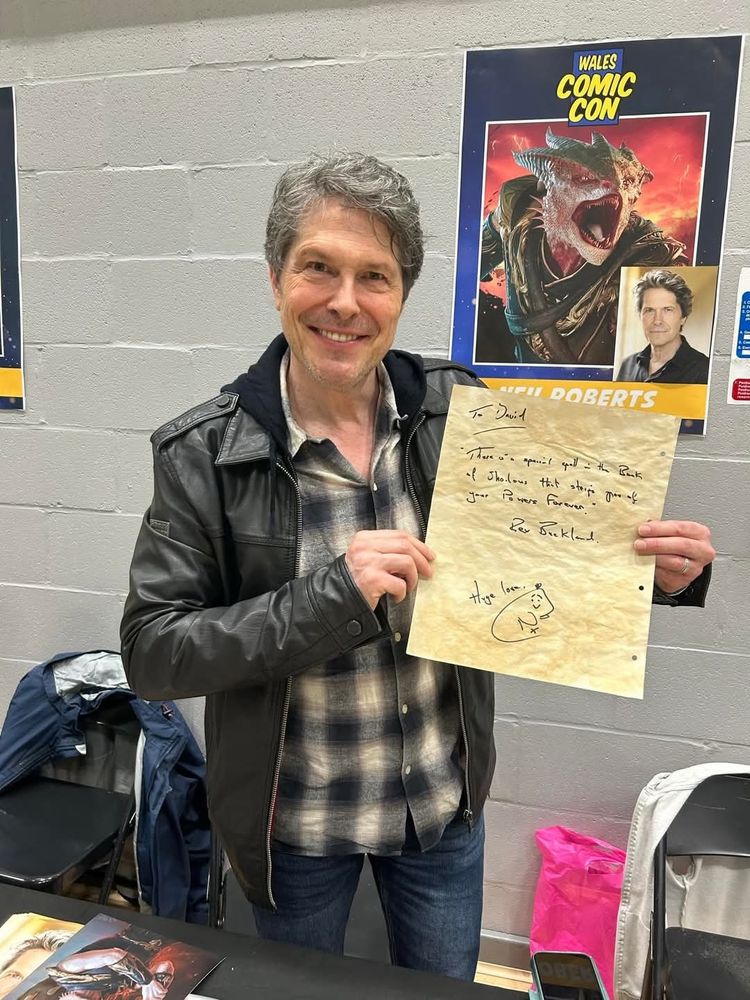 WALES
COMIC
CON
NEIL ROBERTS
To David
"There is a special spell in the Book
of Shadows that strips you of
your Powers Forever."
Rex Buckland.
Huge love.
N
x